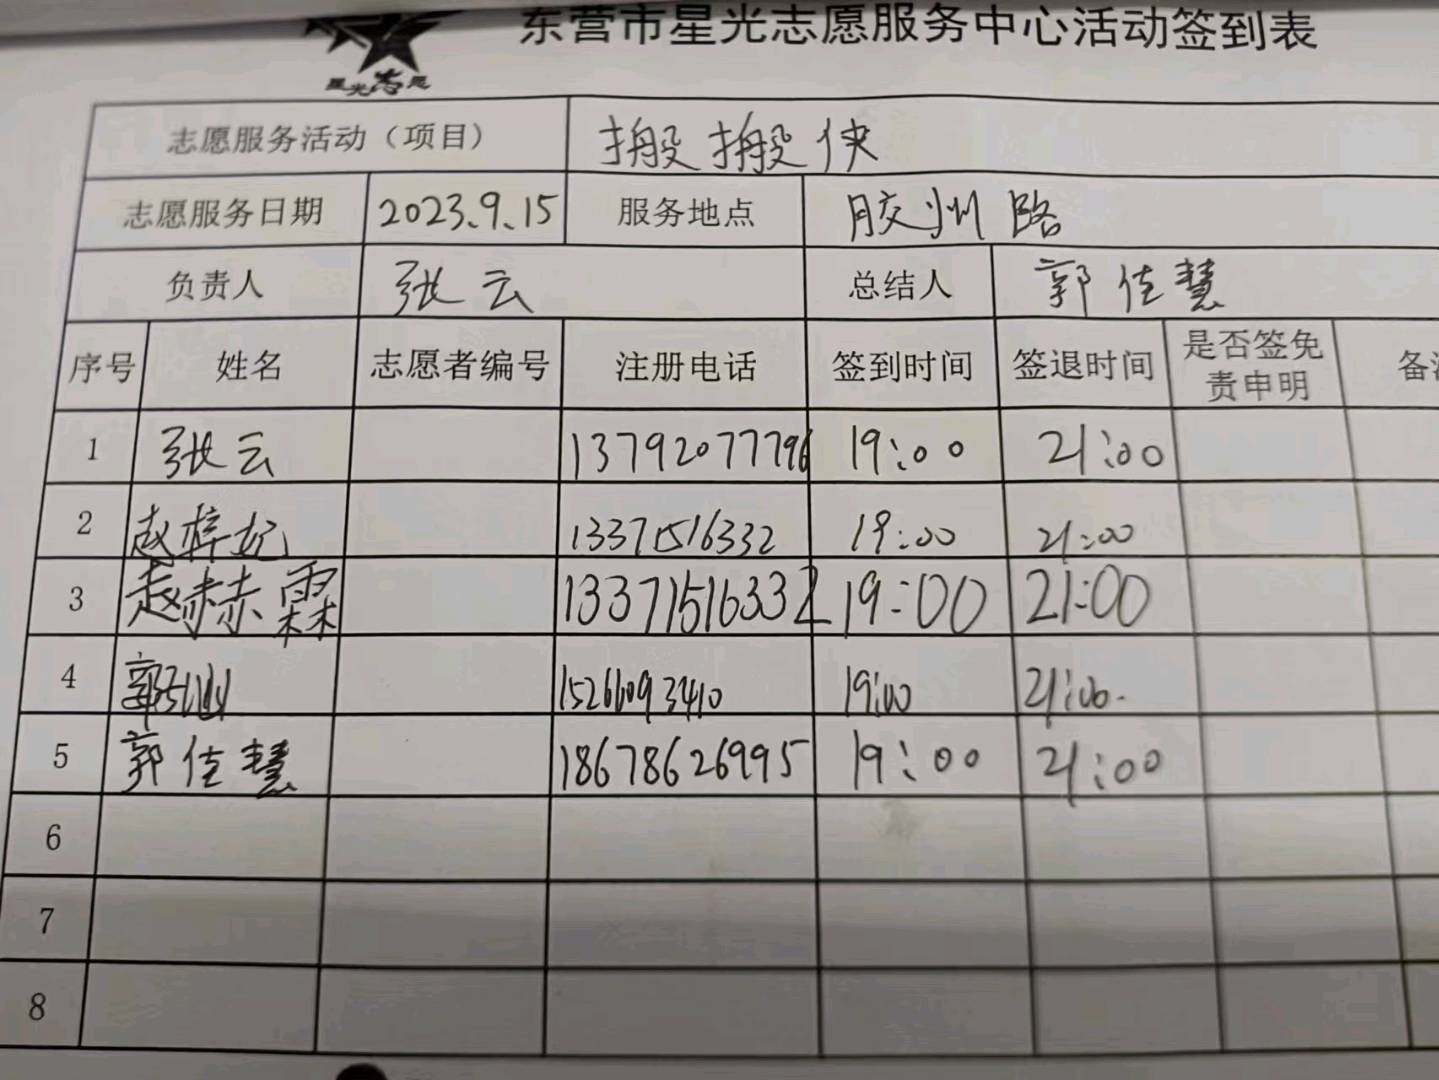 东营市星光志愿服务中心活动签到表
星光志愿
志愿服务活动（项目） 搬搬侠
志愿服务日期 2023.9.15 服务地点 胶州路
负责人 张云 总结人 郭佳慧
序号 姓名 志愿者编号 注册电话 签到时间 签退时间 是否签免责申明 备注
1 张云 13792077796 19:00 21:00
2 赵梓妃 13371516332 19:00 21:00
3 赵赫霖 13371516332 19:00 21:00
4 郭 15266093410 19:00 21:00
5 郭佳慧 18678626995 19:00 21:00
6
7
8